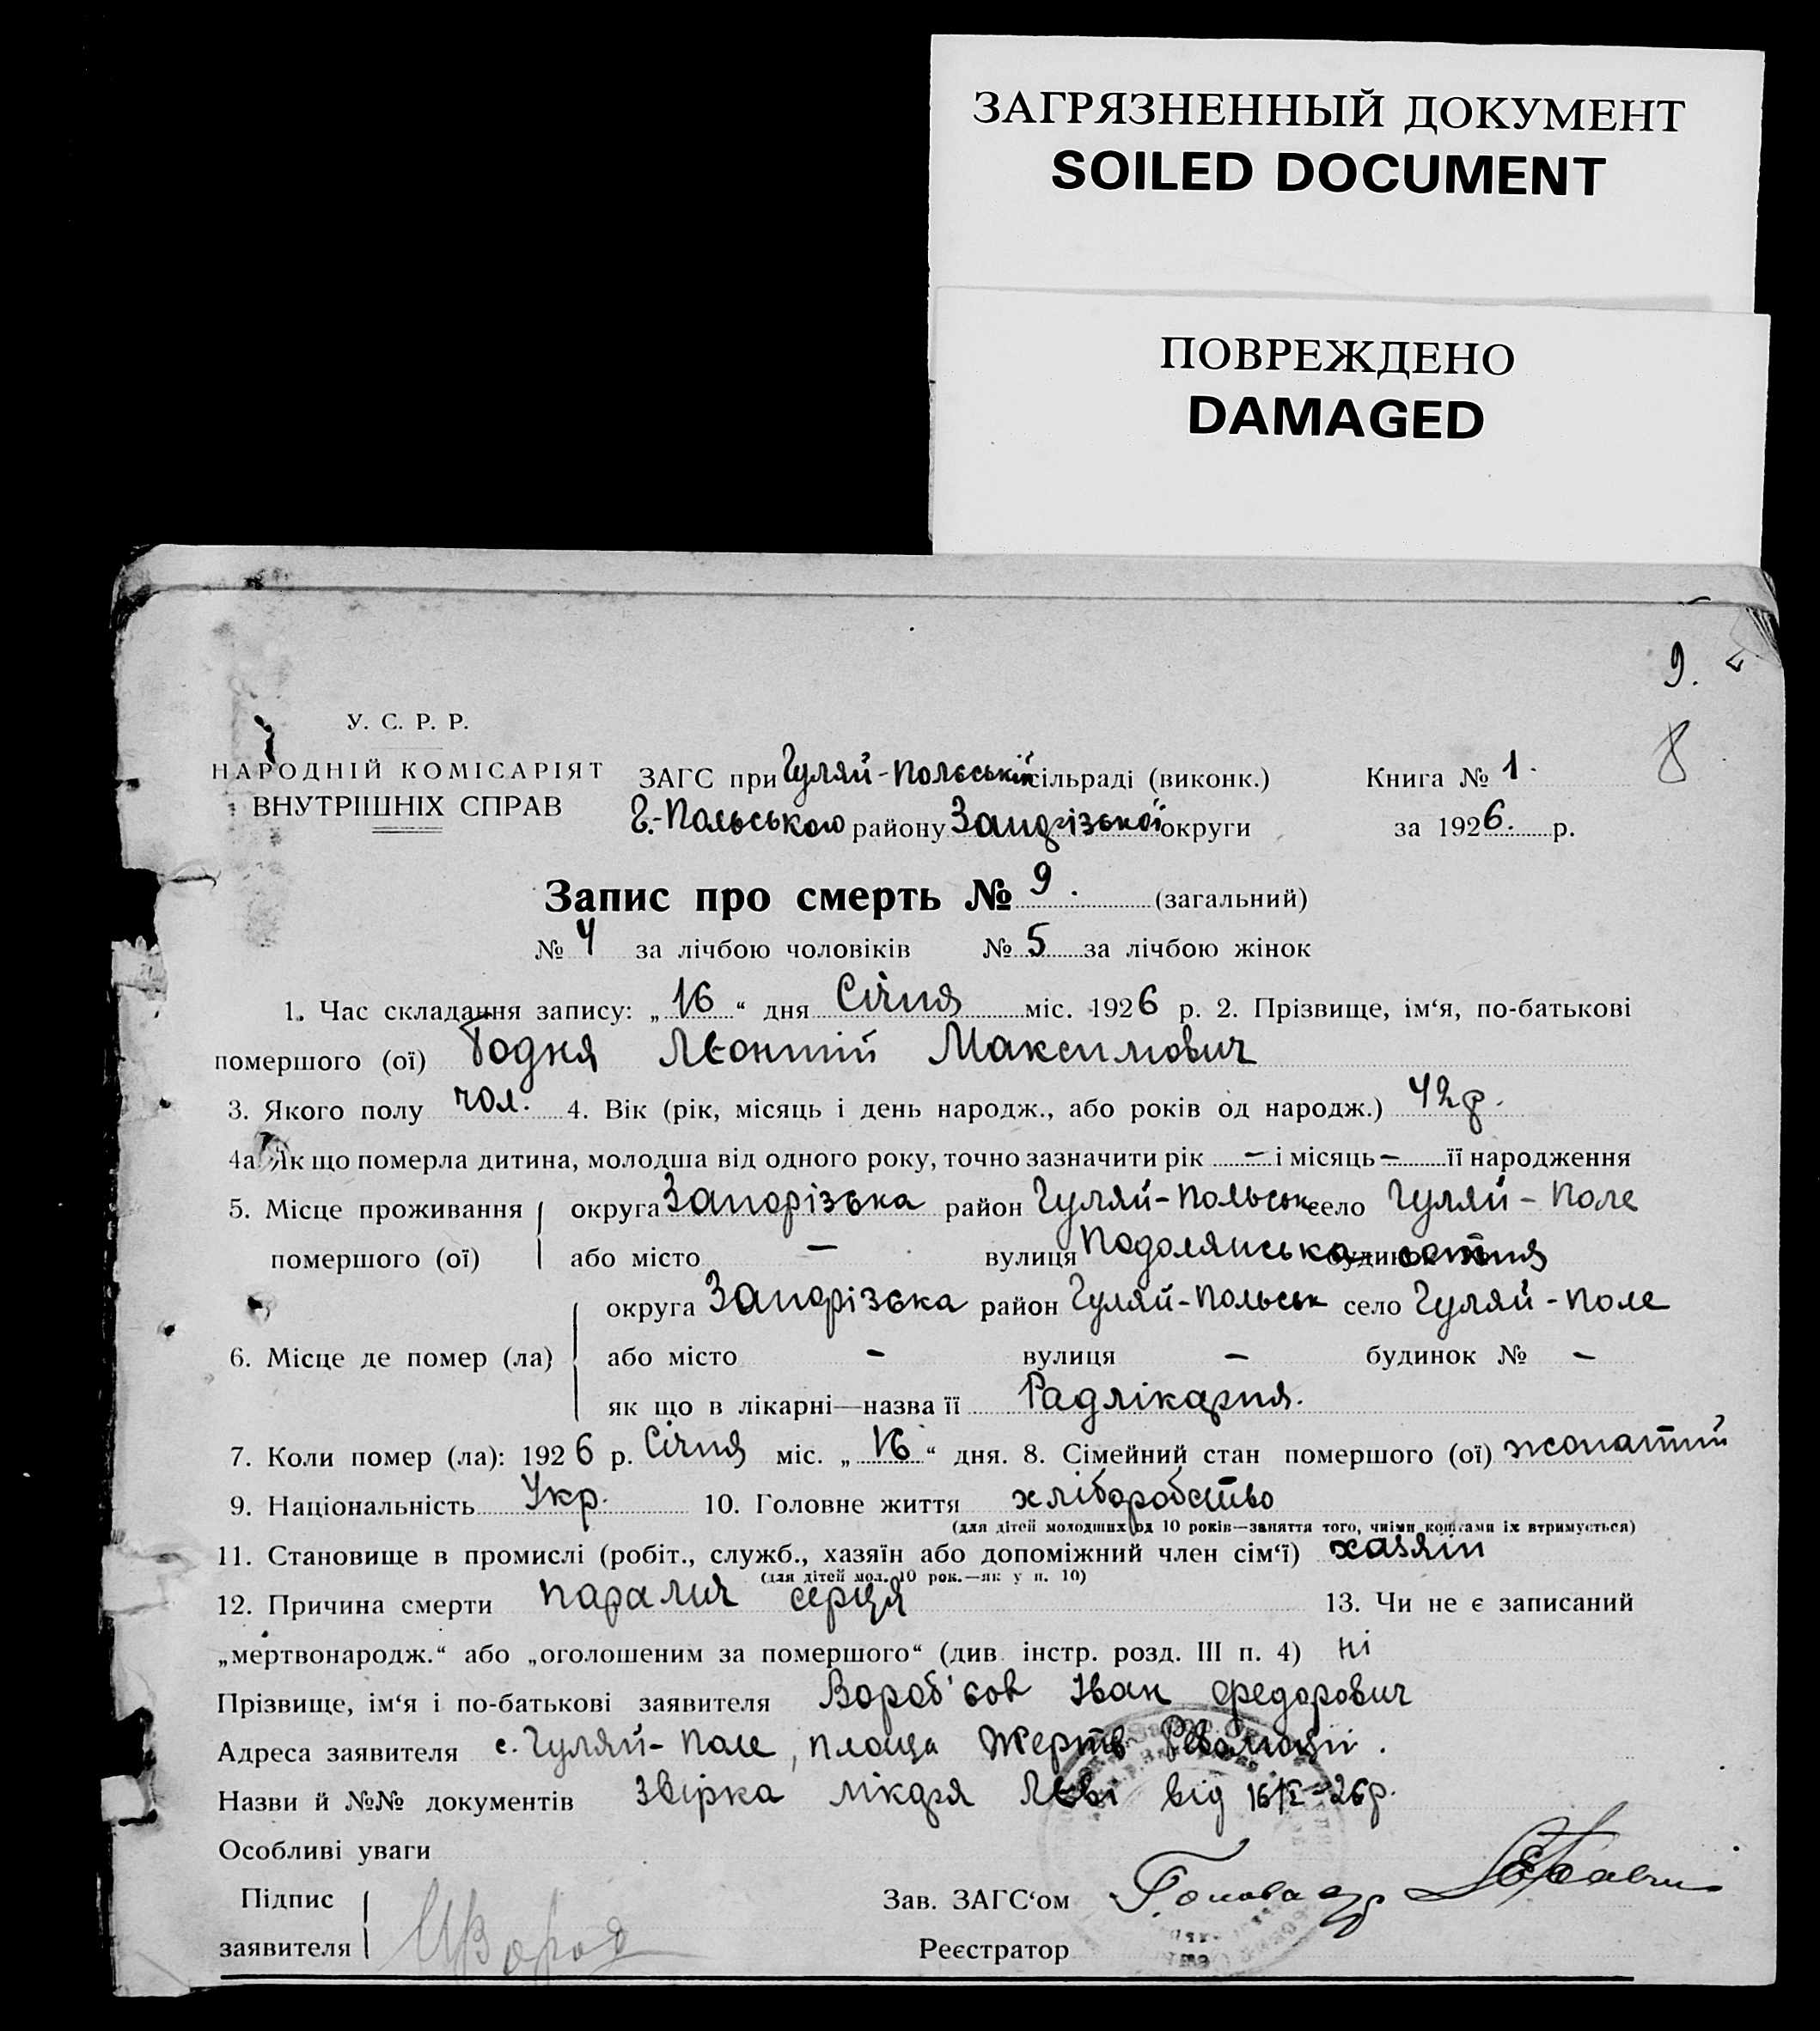 ЗАГРЯЗНЕННЫЙ ДОКУМЕНТ
SOILED DOCUMENT
ПОВРЕЖДЕНО
DAMAGED
9.
8
У. С. Р. Р.
НАРОДНІЙ КОМІСАРІЯТ
ВНУТРІШНІХ СПРАВ
ЗАГС при Гуляй-Полєській сільраді (виконк.) Книга № 1.
Г.-Польського району Запорізької округи за 1926. р.
Запис про смерть № 9. (загальний)
№ 4 за лічбою чоловіків № 5 за лічбою жінок
1. Час складання запису: „16“ дня Січня міс. 1926 р. 2. Прізвище, ім‘я, по-батькові
помершого (ої) Годня Леонтій Максимович
3. Якого полу чол. 4. Вік (рік, місяць і день народж., або років од народж.) 42 р.
4а. Як що померла дитина, молодша від одного року, точно зазначити рік – і місяць – її народження
5. Місце проживання округа Запорізька район Гуляй-Польськ село Гуляй-Поле
помершого (ої) або місто – вулиця Подолянська сотня
округа Запорізька район Гуляй-Польськ село Гуляй-Поле
6. Місце де помер (ла) або місто – вулиця – будинок № –
як що в лікарні—назва її Радлікарня.
7. Коли помер (ла): 1926 р. Січня міс. „16“ дня. 8. Сімейний стан помершого (ої) жонатий
9. Національність Укр. 10. Головне життя хліборобство
(для дітей молодших од 10 років—заняття того, чиїми коштами їх втримується)
11. Становище в промислі (робіт., служб., хазяїн або допоміжний член сім‘ї) хазяїн
(для дітей мол. 10 рок.—як у п. 10)
12. Причина смерти паралич серця 13. Чи не є записаний
„мертвонародж.“ або „оголошеним за помершого“ (див. інстр. розд. III п. 4) ні
Прізвище, ім‘я і по-батькові заявителя Вороб'єов Іван Федорович
Адреса заявителя с. Гуляй-Поле, площа Жертв Революції.
Назви й №№ документів Звірка лікаря Леві від 16/I-26р.
Особливі уваги
Підпис
заявителя
Зав. ЗАГС‘ом
Реєстратор